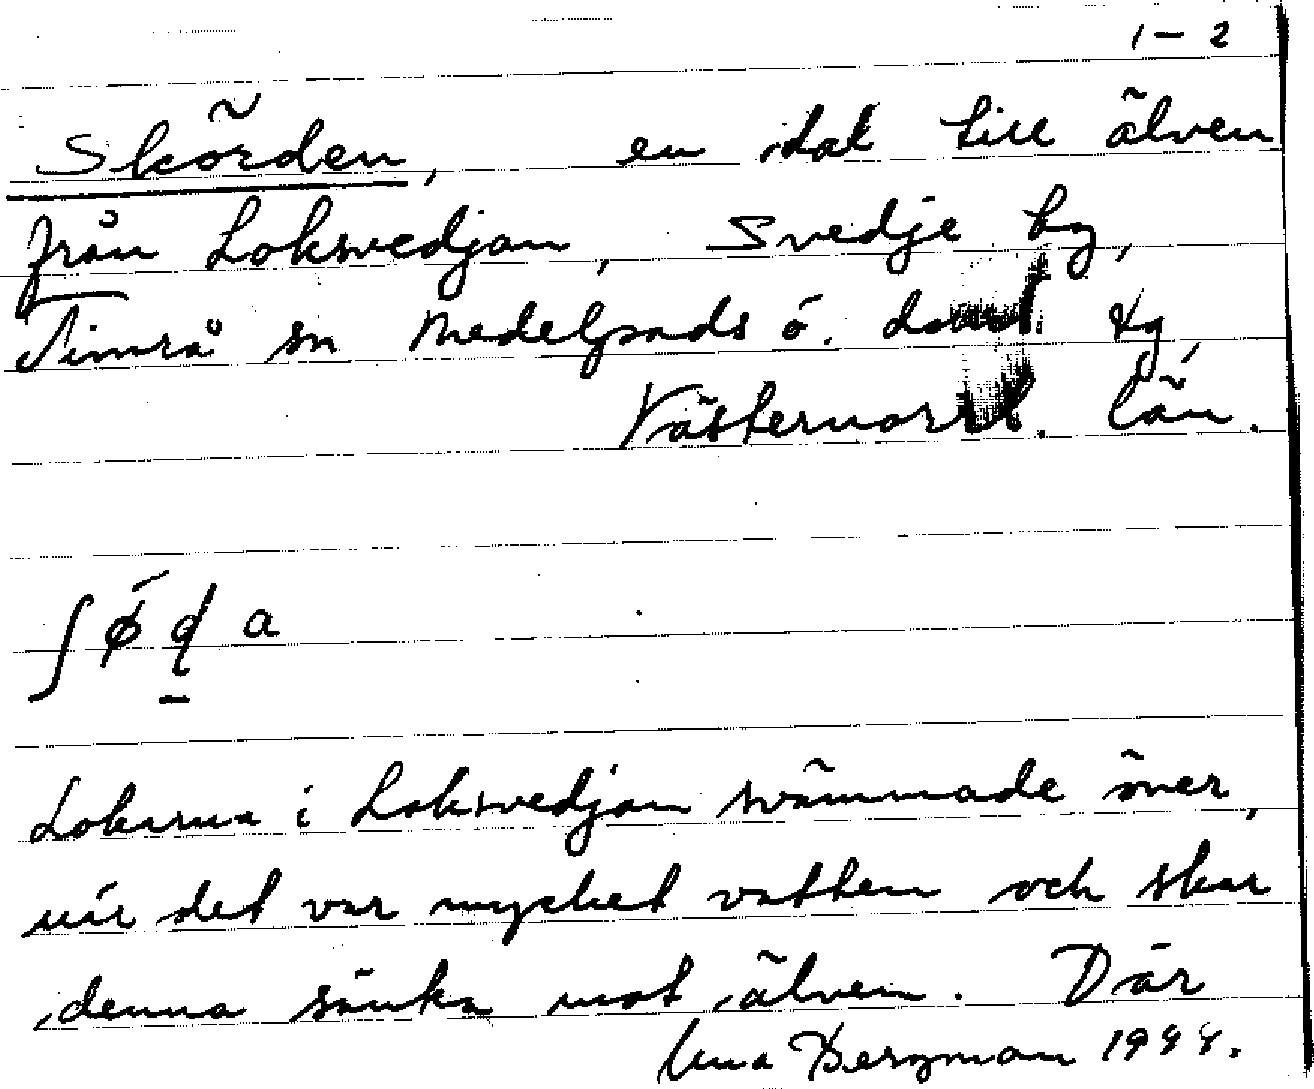 1 – 2
Skörden, en dal till älven
från Loksvedjan, Svedje by,
Timrå sn Medelpads ö. doms tg,
Västernorrl. län.
ʃǿɖa
Lokarna i Loksvedjan svämmade över,
när det var mycket vatten och skar
denna sänka mot älven. Där
Bergman 19